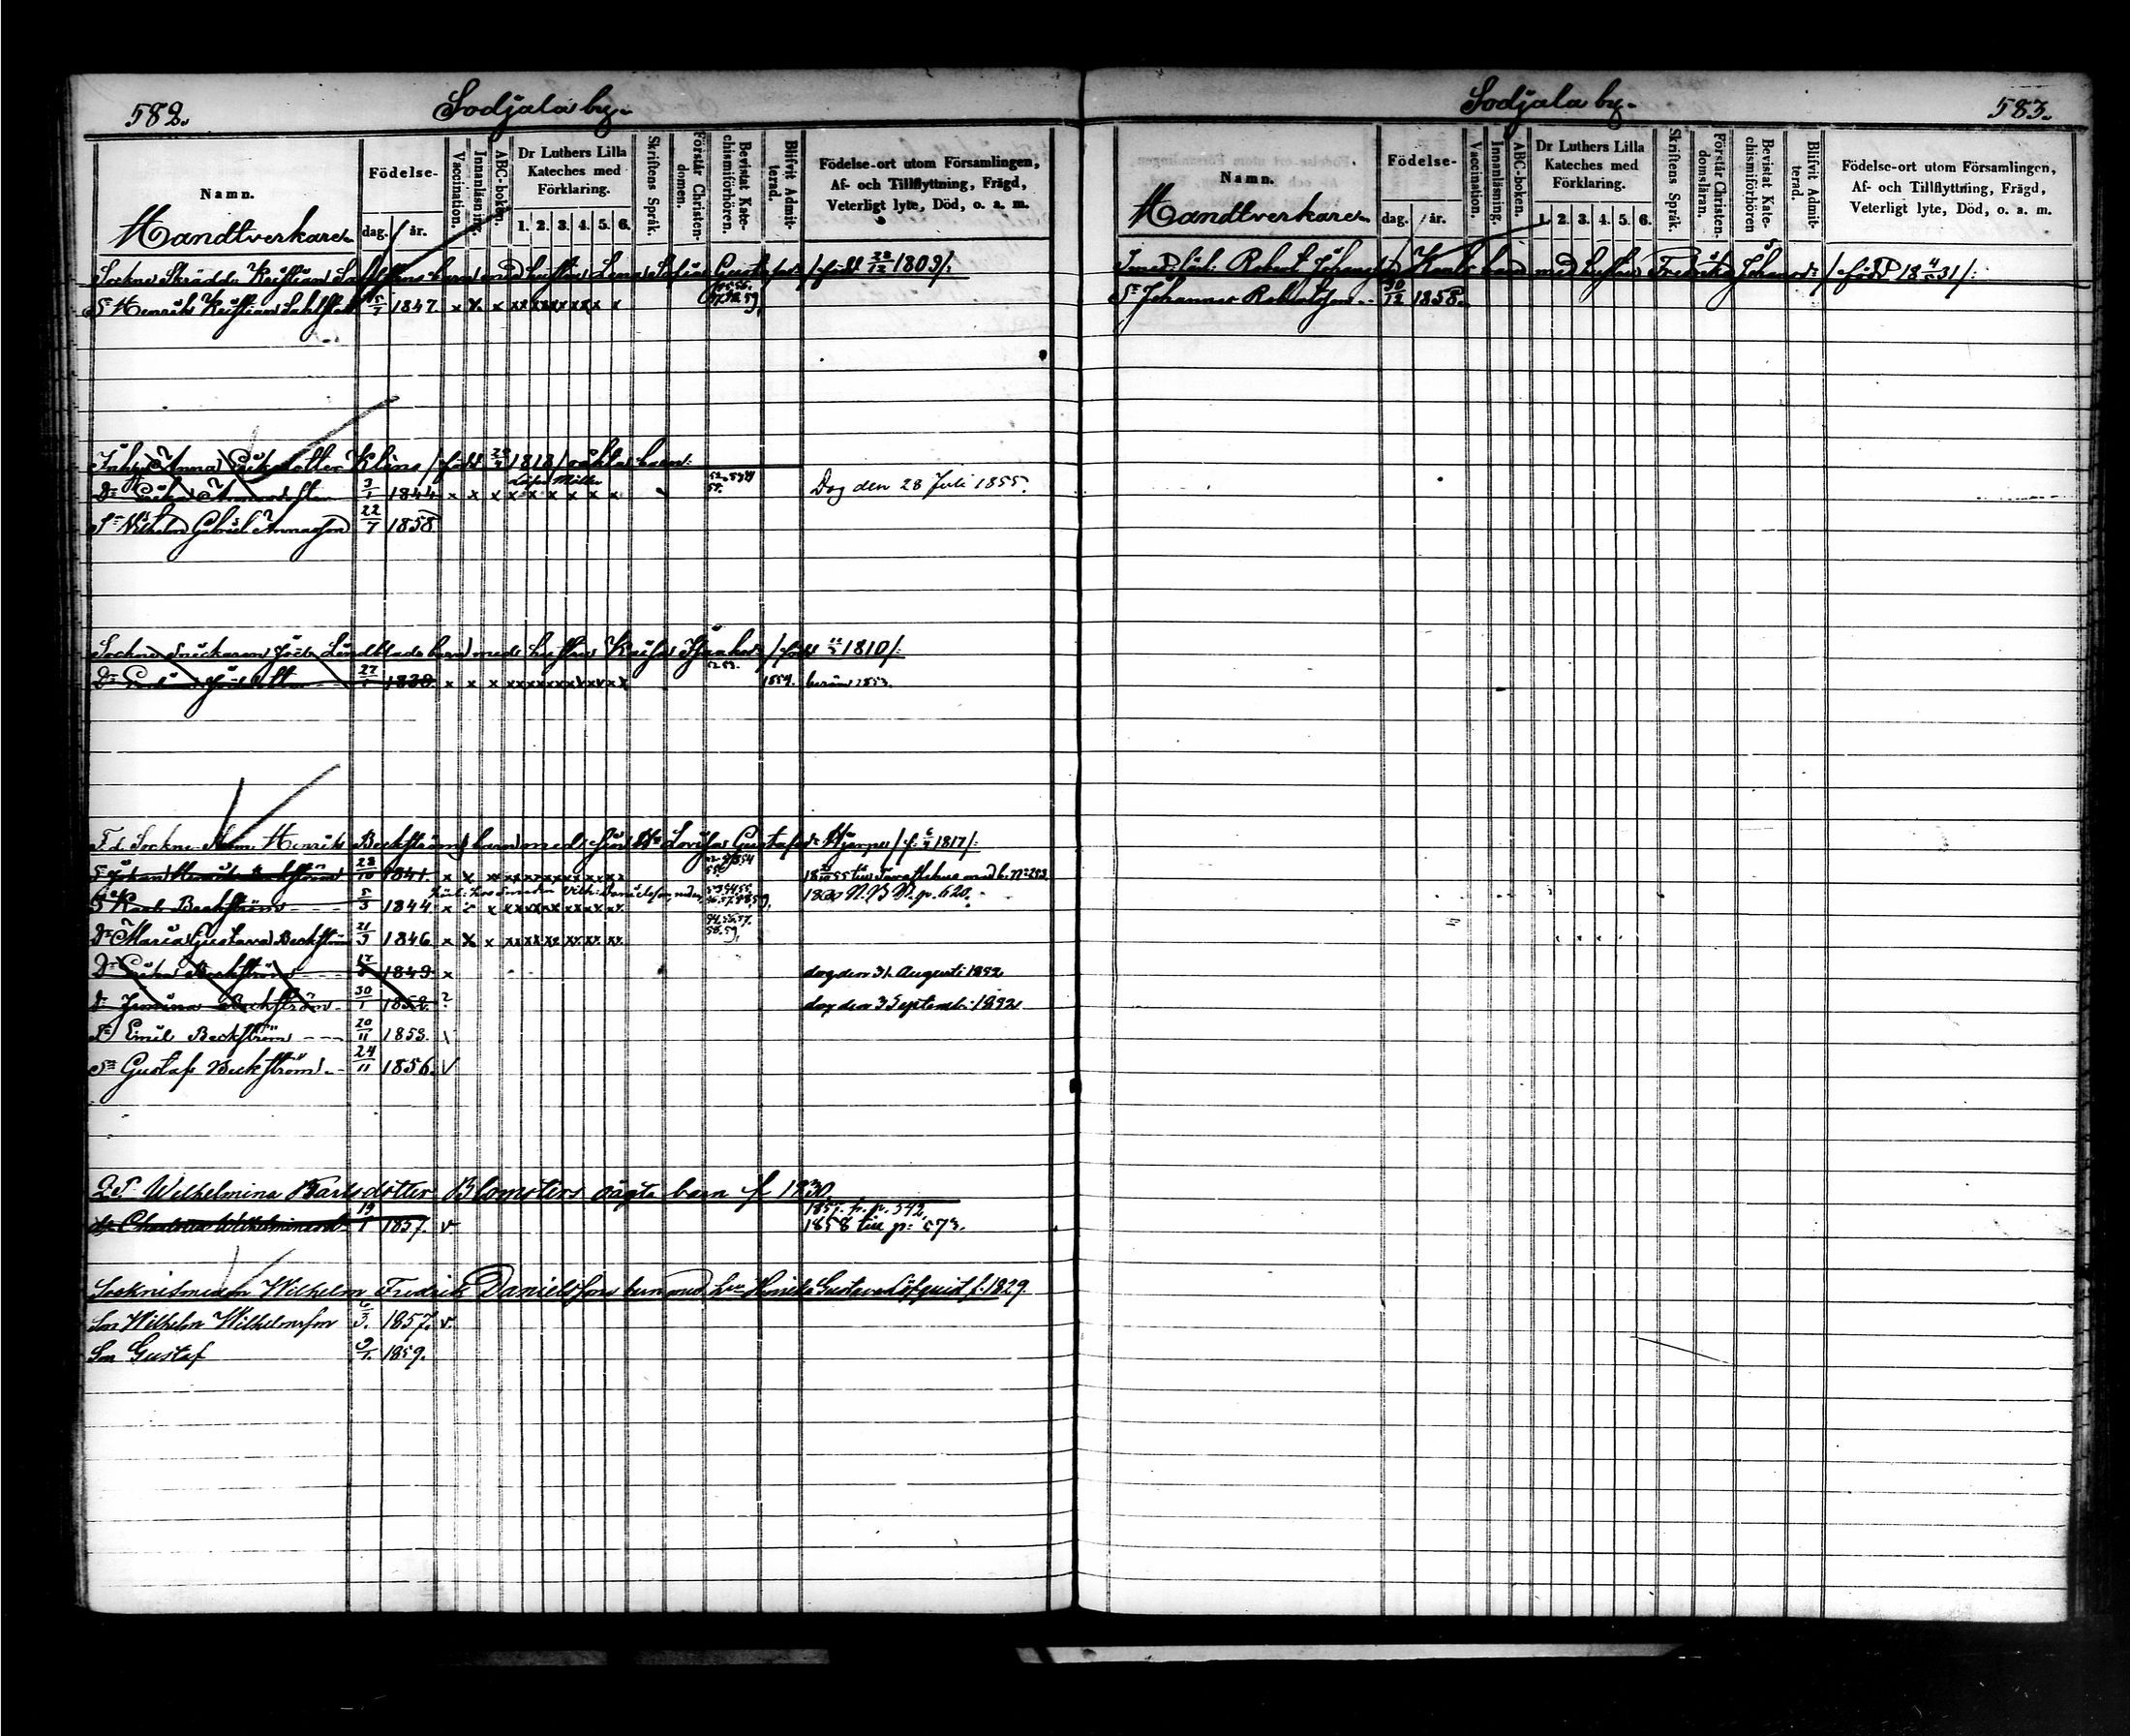 582.
Sodjala by.
Namn.
Handtverkare
Födelse-
dag.
år.
Vaccination.
Innanläsning.
ABC-boken.
Dr Luthers Lilla Kateches med Förklaring.
1. 2. 3. 4. 5. 6.
Skriftens Språk.
Förstår Christen-domen.
Bevistat Kate-chismiförhören.
Blifvit Admit-terad.
Födelse-ort utom Församlingen,
Af- och Tillflyttning, Frägd,
Veterligt lyte, Död, o. a. m.
Sockne Skräddar Kristian barn med hustru Lena Sofia Gustafsd: /född 28/12 1803/:
Sn Henrik Kristian Sahlsten 5/7 1847. x x x xx xx xx xx x x
Inhys Anna Eriksdotter Kléns /född 1818/ oäkta barn:
Dr 3/1 1844 x x x x x x x x x Dog den 28 Juli 1855.
Sn Vilhelm Gabriel Annasson 22/7 1858
Sockne Snickaren Joel Lindblads barn med hustru Kaisa /född 1810/:
Dr 27/1 1838 x x x xx xx xx xx xx xx 1854.
F.d. Sockne Henrik Beckströms barn med Lovisa Gustafsd: Hjerpe /f: 6/2 1817/:
Sn Johan Henrik Beckström 28/10 1841. x x x xx xx xx xx xx xx
Sn Karl Beckström 5/3 1844. x x x xx xx xx xx xx xx 1860 N.B. p. 620.
Dr Maria Gustava Beckström 21/3 1846 x x x xx xx xx xx xx xx
Dr Erika Beckström 1849 x dog den 31 Augusti 1852
Dr Beckström 30/1 1852. ? dog den 3 Septemb: 1852
Sn Emil Beckström 20/11 1853.
Sn Gustaf Beckström 24/11 1856. v
Wilhelmina Karlsdotter Blomsters oägta barn f 1830
1857. fr. p. 542.
dr Wilhelminasd. 19/1 1857. v. 1858 till p: 573.
Socknesmeden Wilhelm Fredrik Danielssons barn med hu Gustava Löfquist f. 1829.
Son Wilhelm Wilhelmsson 1857. v.
Son Gustaf 1859.
Sodjala by.
583.
Namn.
Handtverkare
Födelse-
dag.
år.
Vaccination.
Innanläsning.
ABC-boken.
Dr Luthers Lilla Kateches med Förklaring.
1. 2. 3. 4. 5. 6.
Skriftens Språk.
Förstår Christen-domsläran.
Bevistat Kate-chismiförhören
Blifvit Admit-terad.
Födelse-ort utom Församlingen,
Af- och Tillflyttning, Frägd,
Veterligt lyte, Död, o. a. m.
Robert barn med hustru Fredrika Johansd: /född 18 4/5 31/:
Sn Johannes Robertsson 30/12 1858.